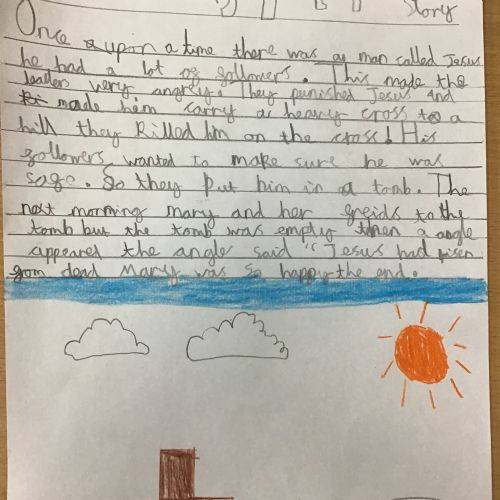 Story
Once upon a time there was a man called Jesus
he had a lot of gollowers. This made the
leaders very angrey. They punished Jesus and
made him carry a heavy cross to a
hill they killed him on the cross! His
gollowers wanted to make sure he was
sage. So they put him in a tomb. The
next morning mary and her greids to the
tomb but the tomb was empty then a angle
appeared the angle said "Jesus had risen
grom dead Marry was so happy the end.